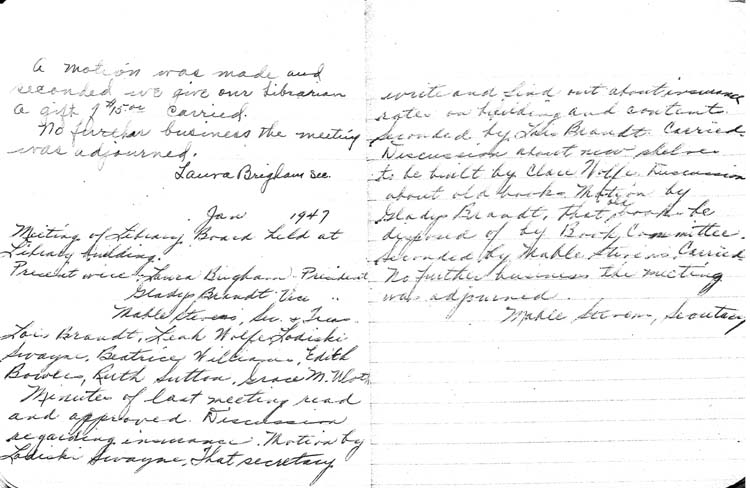 A motion was made and
seconded we give our Librarian
a gift of $15.00 Carried.
No further business the meeting
was adjourned.
Laura Brigham sec.
Jan 1947
Meeting of Library Board held at
Library building.
Present were: Laura Brigham - President
Gladys Brandt Vice "
Mable Stevens, Sec. & Treas.
Lois Brandt, Leah Wolfe, Lodiski
Swayne, Beatrice Williams, Edith
Bowles, Ruth Sutton, Grace M.
Minutes of last meeting read
and approved. Discussion
regarding insurance. Motion by
Lodiski Swayne, That secretary
write and find out about insurance
rates on building and content.
Seconded by Lois Brandt. Carried.
Discussion about new shelves
to be built by Clare Wolfe. Discussion
about old books. Motion by
Gladys Brandt, that old books be
disposed of by Book Committee.
Seconded by Mable Stevens. Carried
No further business the meeting
was adjourned.
Mable Stevens, Secretary